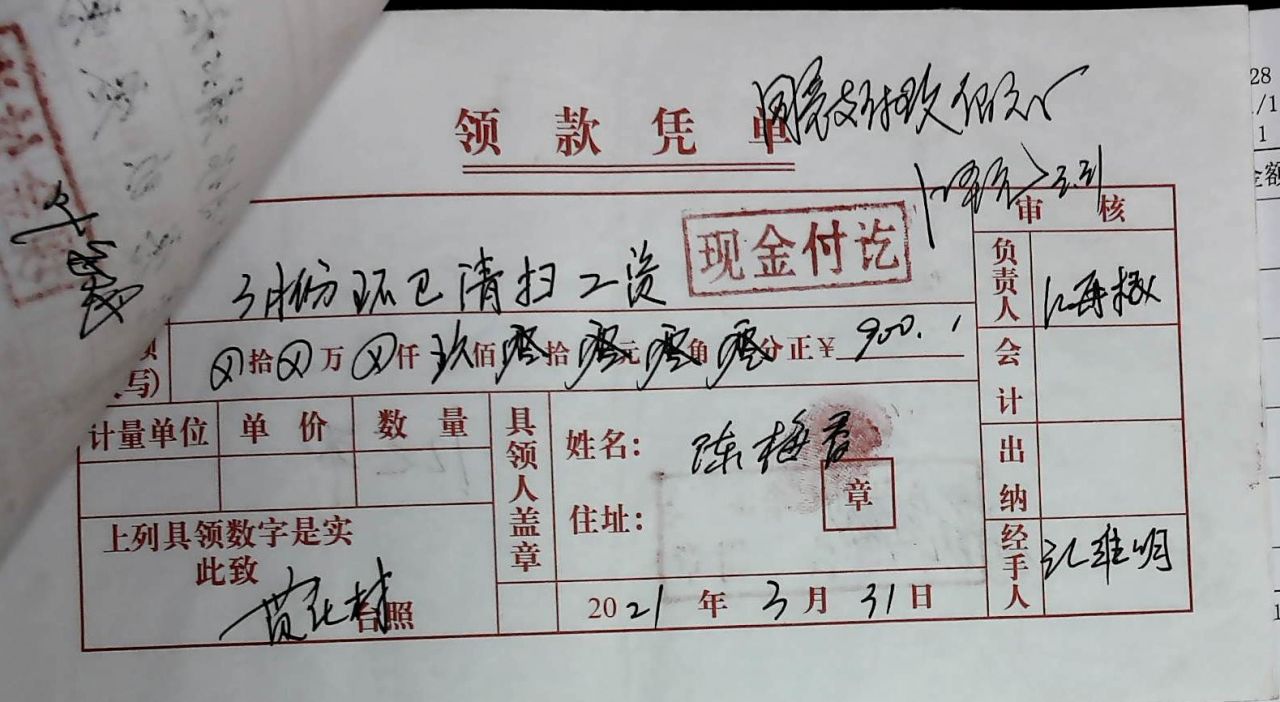 领款凭单
同意支付玖佰元
3.31
审核
3月份环卫清扫工资
现金付讫
负责人
写)
拾 万 仟玖佰零拾零元零角零分正¥900.
会计
计量单位 单价 数量
具领人盖章
姓名: 陈梅君
住址:
章
出纳
上列具领数字是实
此致
台照
2021年3月31日
经手人 江维明
28
/1
1
金额